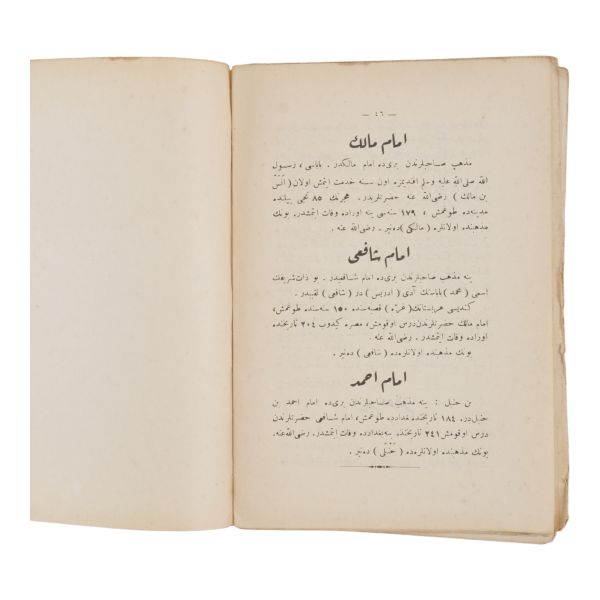 — ٤٦ —
امام مالك
مذهب صاحبلرندن بری ده امام مالكدر. باباسی ، رسول
الله صلی الله علیه وسلم افندیمزه اون سنه خدمت ایتمش اولان ( انس
بن مالك ) رضی الله عنه حضرتلریدر. هجرتك ٨٥ نجی ییلنده
مدینه ده طوغمش ، ١٧٩ سنه سی ینه اوراده وفات ایتمشدر. بونك
مذهبنده اولانلره ( مالكی ) ده نیر . رضی الله عنه .
امام شافعی
ینه مذهب صاحبلرندن بری ده امام شافعیدر . بو ذات شریفك
اسمی ( محمد ) باباسنك آدی ( ادریس ) در ( شافعی ) لقبیدر .
كندیسی عربستانك ( غزه ) قصبه سنده ١٥٠ سنه سنده طوغمش ،
امام مالك حضرتلرندن درس اوقومش ، مصره كیدوب ٢٠٤ تاریخنده
اوراده وفات ایتمشدر. رضی الله عنه .
بونك مذهبنده اولانلره ده ( شافعی ) ده نیر .
امام احمد
بن حنبل : ینه مذهب صاحبلرندن بری ده امام احمد بن
حنبل در. ١٨٤ تاریخنده بغدادده طوغمش ، امام شافعی حضرتلرندن
درس اوقومش ٢٤١ تاریخنده ینه بغدادده وفات ایتمشدر. رضی الله عنه.
بونك مذهبنده اولانلره ده ( حنبلی ) ده نیر .